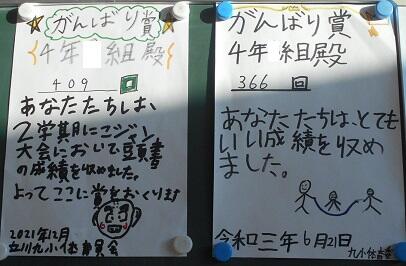 がんばり賞
4年 組殿
409 回
あなたたちは、
2学期ミニコジン
大会において頭書
の成績を収めました。
よってここに賞をおくります
2021年12月
立川九小体育員会
がんばり賞
4年 組殿
366 回
あなたたちは、とても
いい成績を収め
ました。
令和三年6月21日
九小体育委